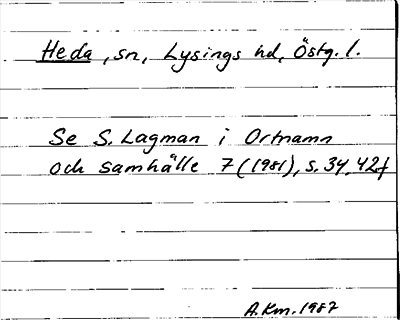 Heda, sn, Lysings hd, Östg. l.
Se S. Lagman i Ortnamn
och samhälle 7 (1981), s. 34, 42f
A.Km. 1987